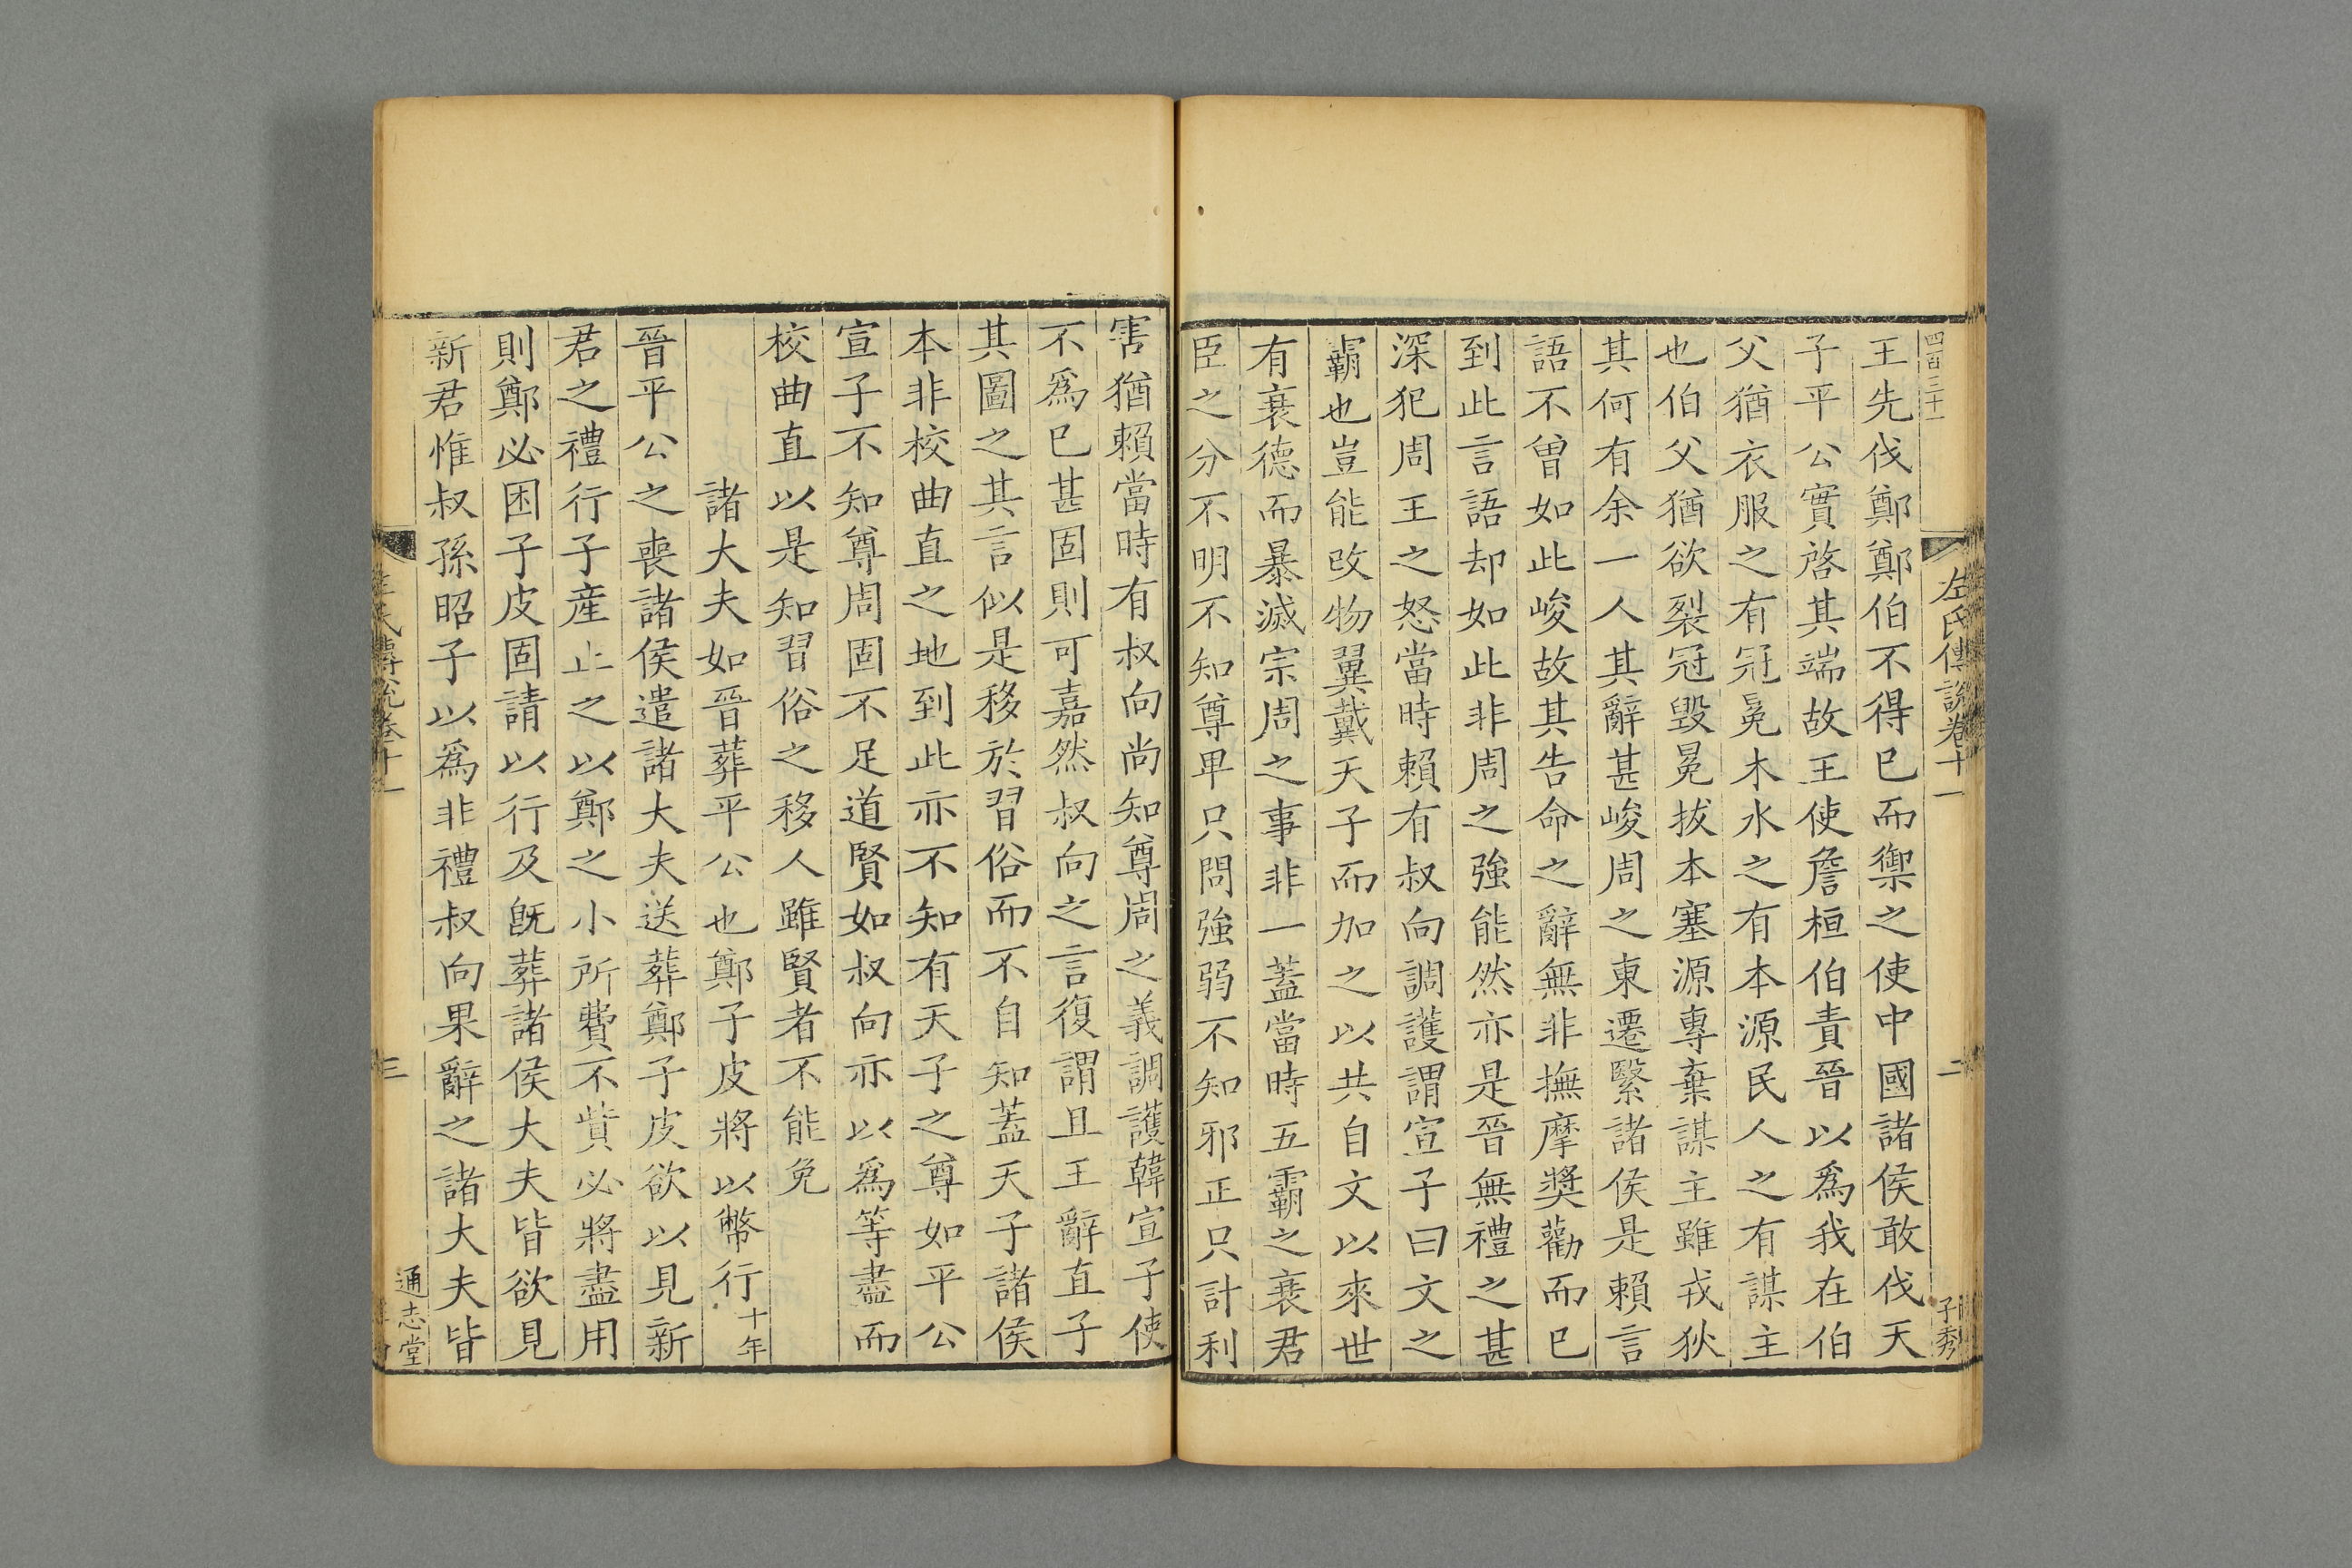 四百三十一
左氏傳說卷十一
二
子秀
王先伐鄭鄭伯不得已而禦之使中國諸侯敢伐天
子平公實啓其端故王使詹桓伯責晉以爲我在伯
父猶衣服之有冠冕木水之有本源民人之有謀主
也伯父猶欲裂冠毀冕拔本塞源專棄謀主雖戎狄
其何有余一人其辭甚峻周之東遷繄諸侯是賴言
語不曾如此峻故其告命之辭無非撫摩獎勸而已
到此言語却如此非周之強能然亦是晉無禮之甚
深犯周王之怒當時賴有叔向調護謂宣子曰文之
霸也豈能改物翼戴天子而加之以共自文以來世
有衰德而暴滅宗周之事非一蓋當時五霸之衰君
臣之分不明不知尊卑只問強弱不知邪正只計利
害猶賴當時有叔向尚知尊周之義調護韓宣子使
不爲已甚固則可嘉然叔向之言復謂且王辭直子
其圖之其言似是移於習俗而不自知蓋天子諸侯
本非校曲直之地到此亦不知有天子之尊如平公
宣子不知尊周固不足道賢如叔向亦以爲等盡而
校曲直以是知習俗之移人雖賢者不能免
諸大夫如晉葬平公也鄭子皮將以幣行十年
晉平公之喪諸侯遣諸大夫送葬鄭子皮欲以見新
君之禮行子産止之以鄭之小所費不貲必將盡用
則鄭必困子皮固請以行及旣葬諸侯大夫皆欲見
新君惟叔孫昭子以爲非禮叔向果辭之諸大夫皆
左氏傳說卷十一
三
通志堂